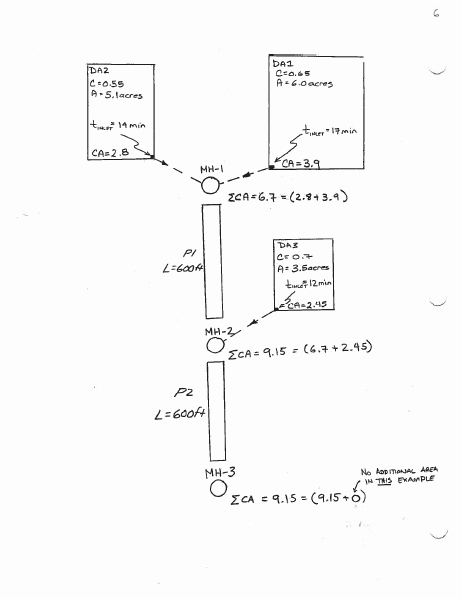 6
DA2
C=0.55
A=5.1acres
tINLET=14min
CA=2.8
DA1
C=0.65
A=6.0acres
tINLET=17min
CA=3.9
MH-1
ΣCA=6.7=(2.8+3.9)
P1
L=600ft
DA3
C=0.7
A=3.5acres
tINLET=12min
CA=2.45
MH-2
ΣCA=9.15=(6.7+2.45)
P2
L=600ft
MH-3
NO ADDITIONAL AREA
IN THIS EXAMPLE
ΣCA=9.15=(9.15+0)